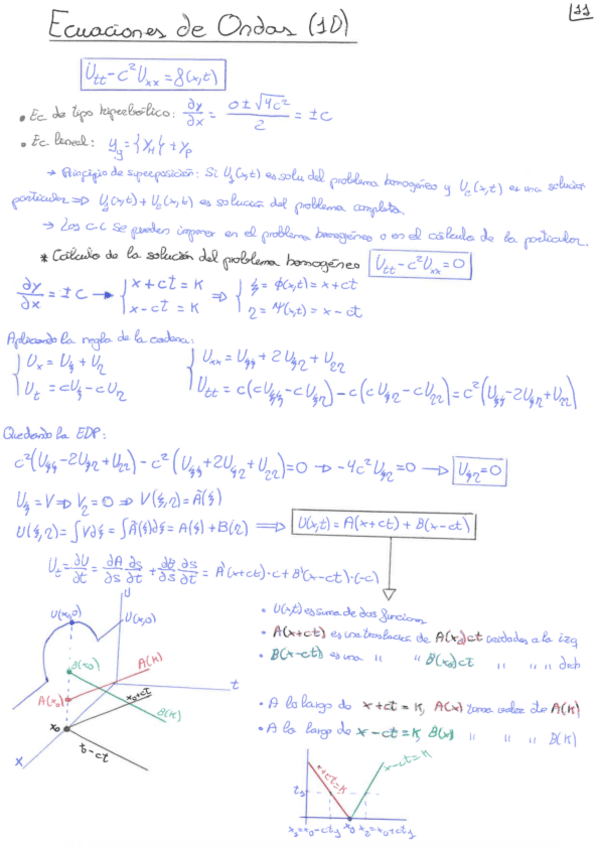 11
Ecuaciones de Ondas (1D)
Utt - c²Uxx = g(x,t)
• Ec de tipo hiperbólico: ∂y/∂x = (0 ± √4c²)/2 = ±c
• Ec lineal: yg = {yH} + yp
→ Principio de superposición: Si Ug(x,t) es solu del problema homogéneo y Uc(x,t) es una solución
particular => Ug(x,t) + Uc(x,t) es solución del problema completa.
→ Los c.c se pueden imponer en el problema homogéneo o en el cálculo de la particular.
* Cálculo de la solución del problema homogéneo Utt - c²Uxx = 0
∂y/∂x = ±c → { x + ct = K ⇒ { ξ = ϕ(x,t) = x + ct
x - ct = K η = Ψ(x,t) = x - ct
Aplicando la regla de la cadena:
Ux = Uξ + Uη Uxx = Uξξ + 2Uξη + Uηη
Ut = cUξ - cUη Utt = c(cUξξ - cUξη) - c(cUξη - cUηη) = c²(Uξξ - 2Uξη + Uηη)
Quedando la EDP:
c²(Uξξ - 2Uξη + Uηη) - c²(Uξξ + 2Uξη + Uηη) = 0 → -4c²Uξη = 0 → Uξη = 0
Uξ = V ⇒ Vη = 0 ⇒ V(ξ,η) = Ã(ξ)
U(ξ,η) = ∫Vdξ = ∫Ã(ξ)dξ = A(ξ) + B(η) ⇒ U(x,t) = A(x+ct) + B(x-ct)
Ut = ∂U/∂t = ∂A/∂s ∂s/∂t + ∂B/∂s ∂s/∂t = A'(x+ct)·c + B'(x-ct)·(-c)
• U(x,t) es suma de dos funciones
• A(x+ct) es una traslación de A(x0) ct unidades a la izq
• B(x-ct) es una " " B(x0) ct " " " drch
• A lo largo de x+ct = K, A(x) toma valor de A(K)
• A lo largo de x-ct = K, B(x) " " " B(K)
U
U(x0,0)
U(x,0)
B(x0)
A(K)
t
A(x0)
x0+ct
B(K)
x0
x0-ct
x
x+ct=K
x-ct=K
t1
x1=x0-ct1 x0 x2=x0+ct1